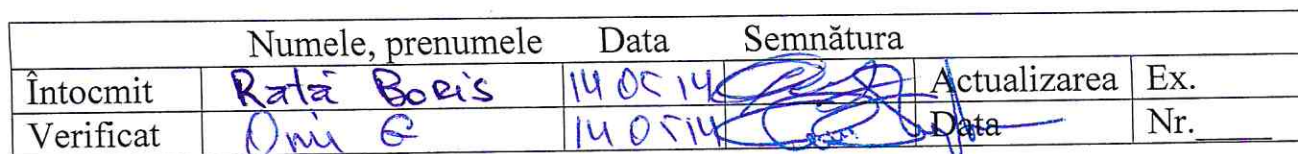 Numele, prenumele Data Semnătura
Întocmit Rată Boris 14 05 14 Actualizarea Ex.
Verificat 14 05 14 Data Nr.